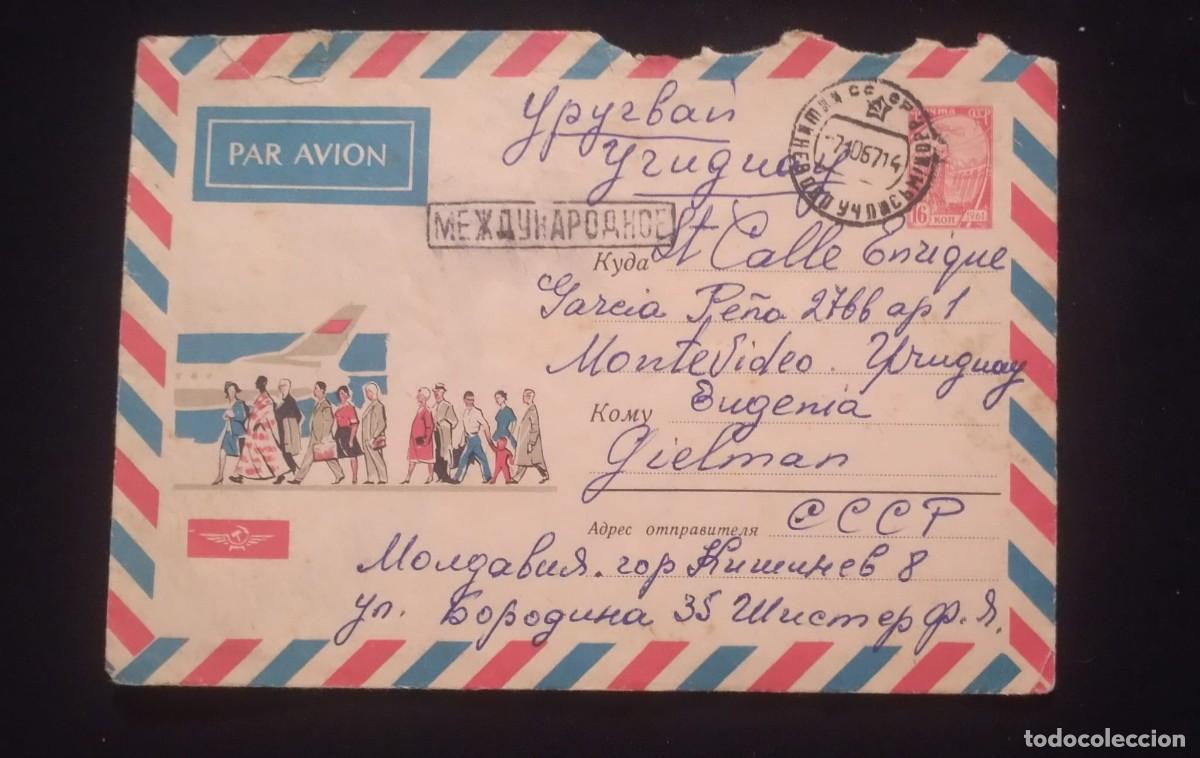 PAR AVION
Уругвай
Uruguay
МЕЖДУНАРОДНОЕ
7106714
16 коп 1961
Куда St Calle Enrique
Garcia Peña 2766 ap 1
Montevideo. Uruguay
Кому Eugenia
Gielman
Адрес отправителя СССР
Молдавия. гор Кишинев 8
ул. Бородина 35 Шистер Ф. Я.
todocoleccion